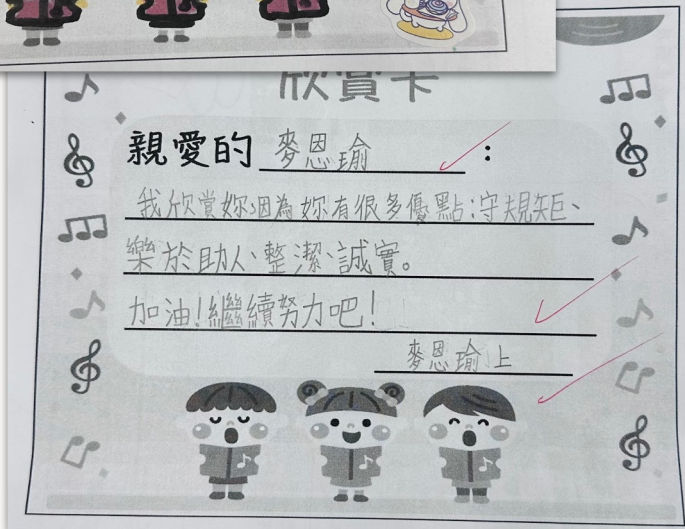 欣賞卡
親愛的 麥恩瑜：
我欣賞妳因為妳有很多優點：守規矩、
樂於助人、整潔、誠實。
加油！繼續努力吧！
麥恩瑜 上